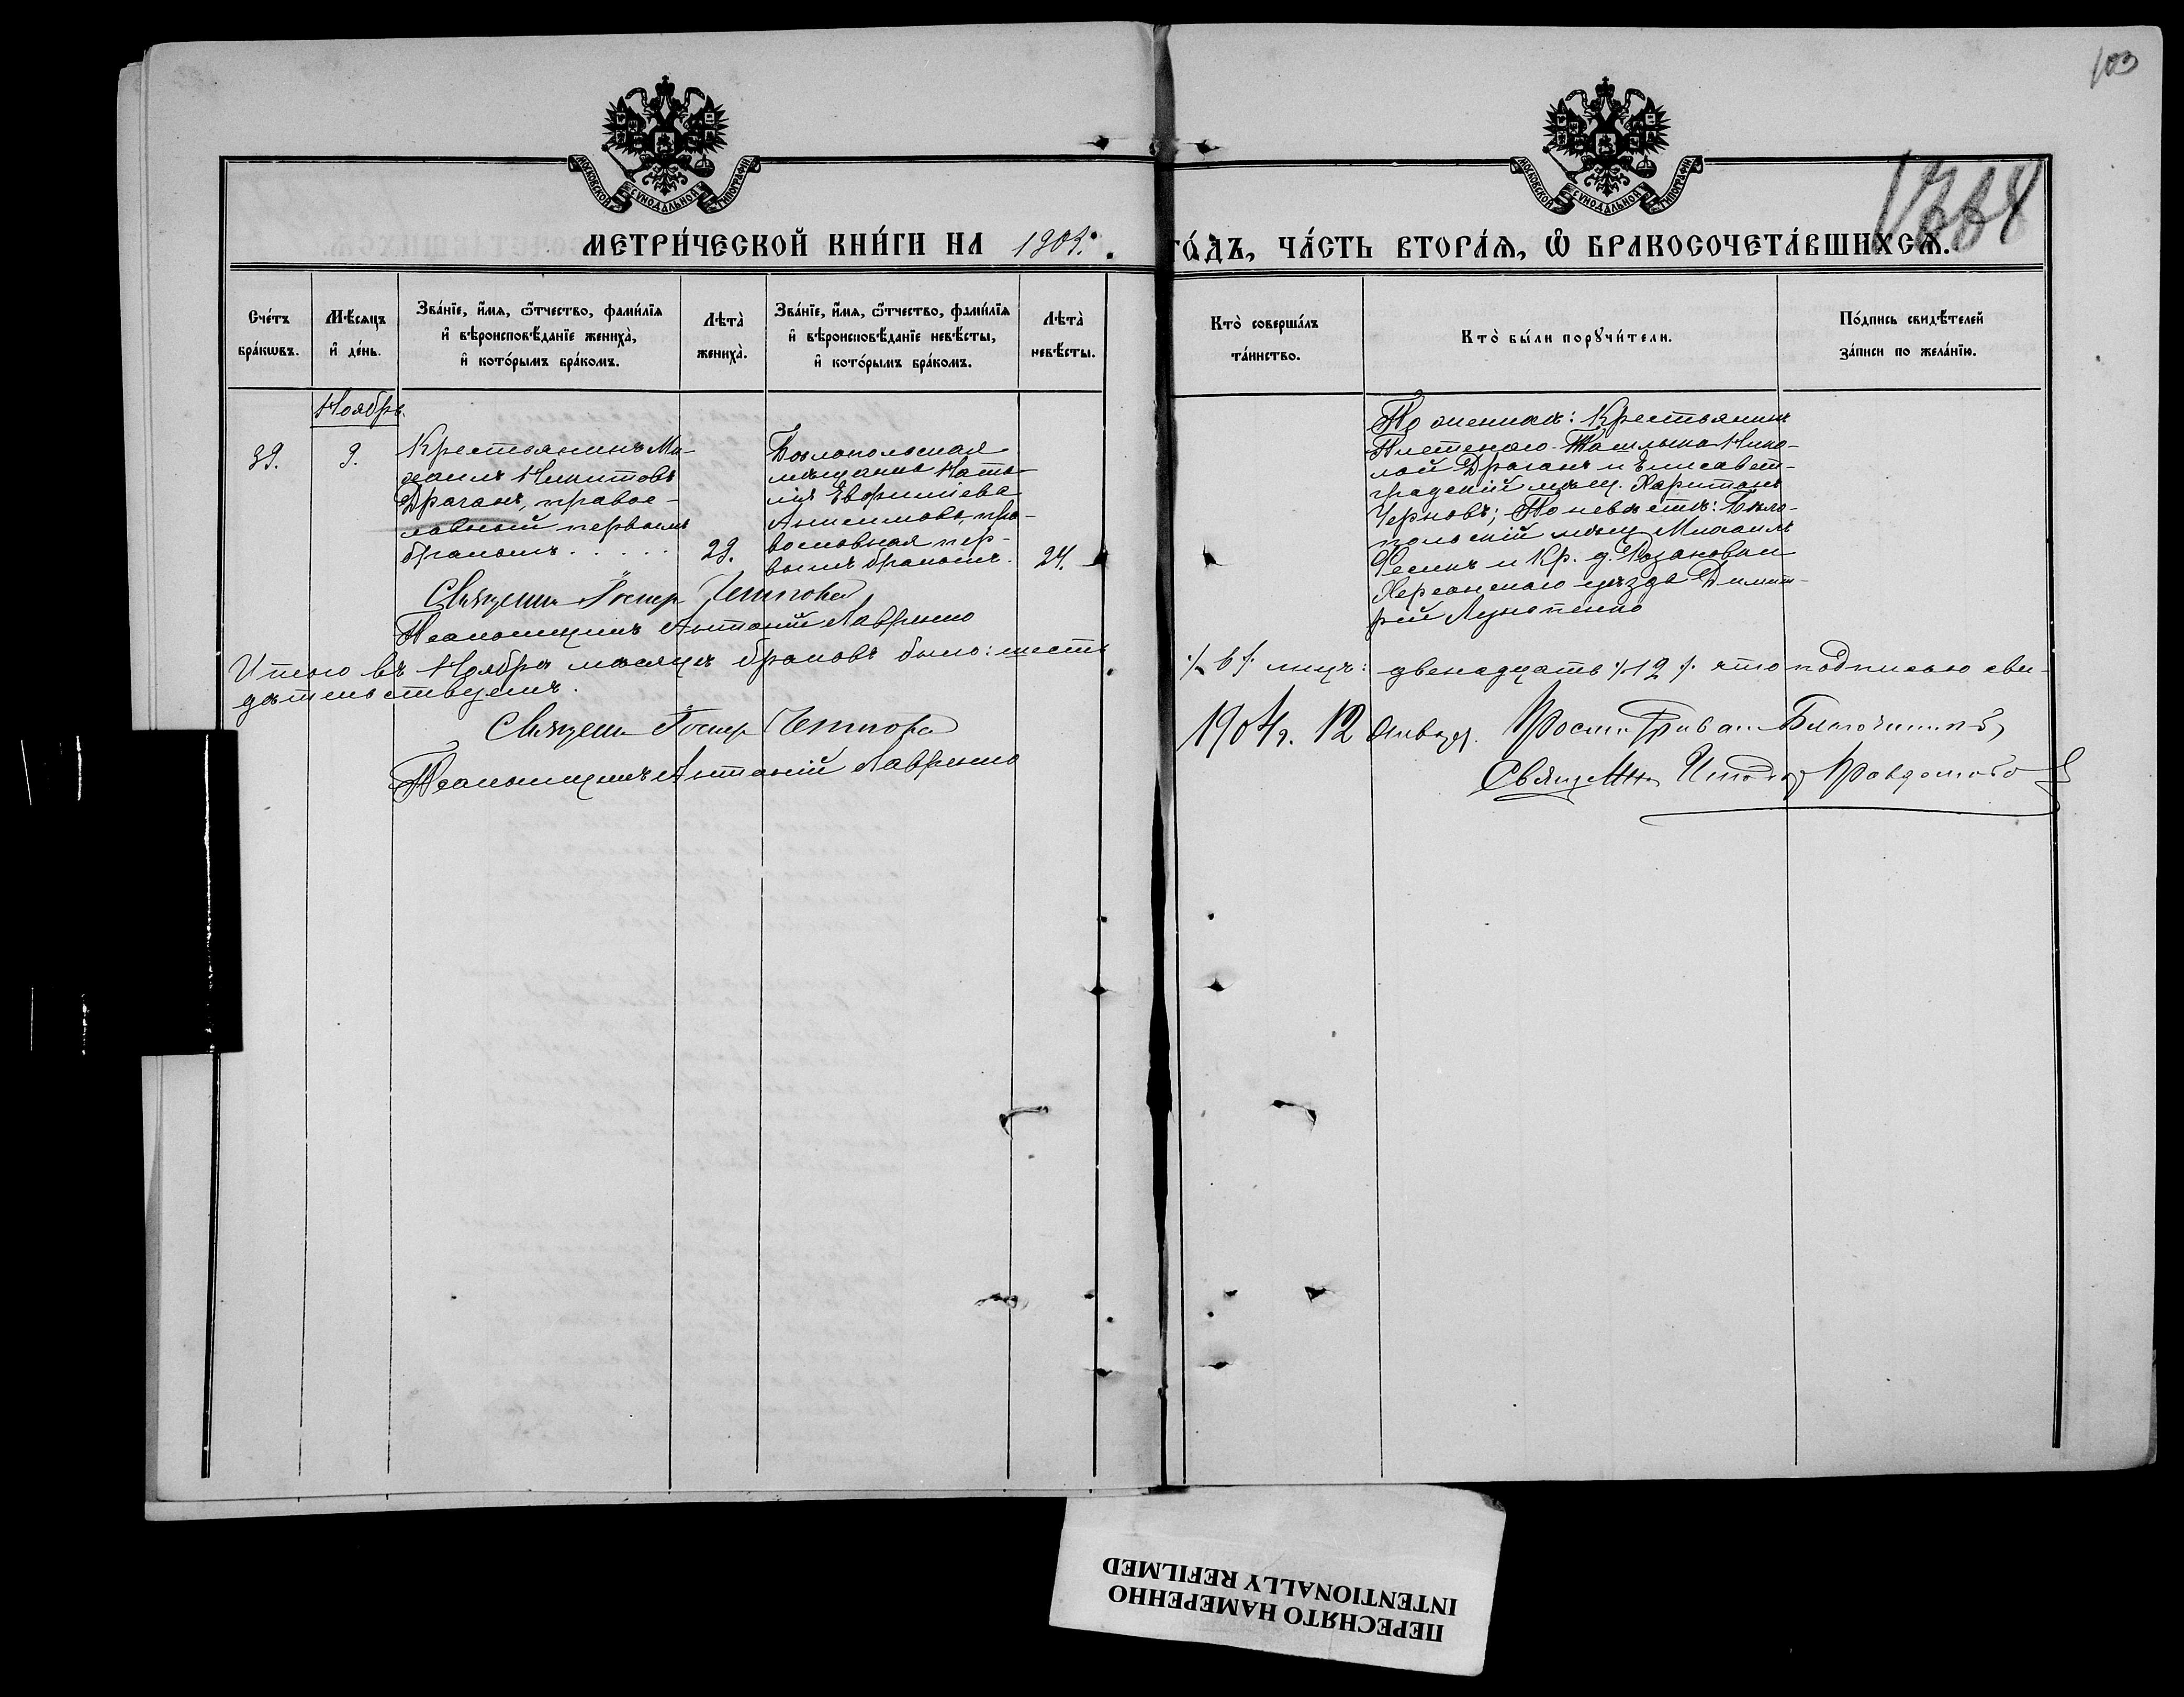 103
1884
МОСКОВСКОЙ СУНОДАЛЬНОЙ ТИПОГРАФІИ
МОСКОВСКОЙ СУНОДАЛЬНОЙ ТИПОГРАФІИ
МЕТРИ́ЧЕСКОЙ КНИ́ГИ НА 1903.
ГО́ДЪ, ЧА́СТЬ ВТОРА́Я, Ѿ БРАКОСОЧЕТА́ВШИХСЯ.
Сче́тъ
бра́кѡвъ.
Мѣ́сяцъ
и҆ де́нь.
Зва́нїе, и҆́мя, ѻ҆́тчество, фами́лїя
и҆ вѣроисповѣ́данїе жениха̀,
и҆ кото́рымъ бра́комъ.
Лѣта̀
жениха̀.
Зва́нїе, и҆́мя, ѻ҆́тчество, фами́лїя
и҆ вѣроисповѣ́данїе невѣ́сты,
и҆ кото́рымъ бра́комъ.
Лѣта̀
невѣ́сты.
Кто̀ соверша́лъ
та́инство.
Кто̀ бы́ли порꙋчи́тели.
По́дпись свидѣ́телей
за́писи по жела́нїю.
Ноябрь.
39.
9.
Крестьянинъ Ми-
хаилъ Никитовъ
Драганъ, правос-
лавный первымъ
бракомъ . . . . .
29.
Бѣлопольская
мѣщанка Ната-
лія Евфиміева
Анисимова, пра-
вославная пер-
вымъ бракомъ.
24.
По женихѣ: Крестьянинъ
Плетенаго-Ташлыка Нико-
лай Драганъ и Елисавет-
градскій мѣщ. Харитонъ
Черновъ; По невѣстѣ: Бѣло-
польскій мѣщ. Михаилъ
и Кр. д.
Херсонскаго уѣзда Димит-
рій
Священн.
Псаломщикъ Антоній Лавренко
Итого въ Ноябрѣ мѣсяцѣ браковъ было: шесть
./. 6 ./. лицъ: двенадцать ./. 12 ./. что подписью сви-
дѣтельствуемъ.
Священн.
Псаломщикъ Антоній Лавренко
1904 г. 12 Января. Благочинный
Священн.
ПЕРЕСНЯТО НАМЕРЕННО
INTENTIONALLY REFILMED